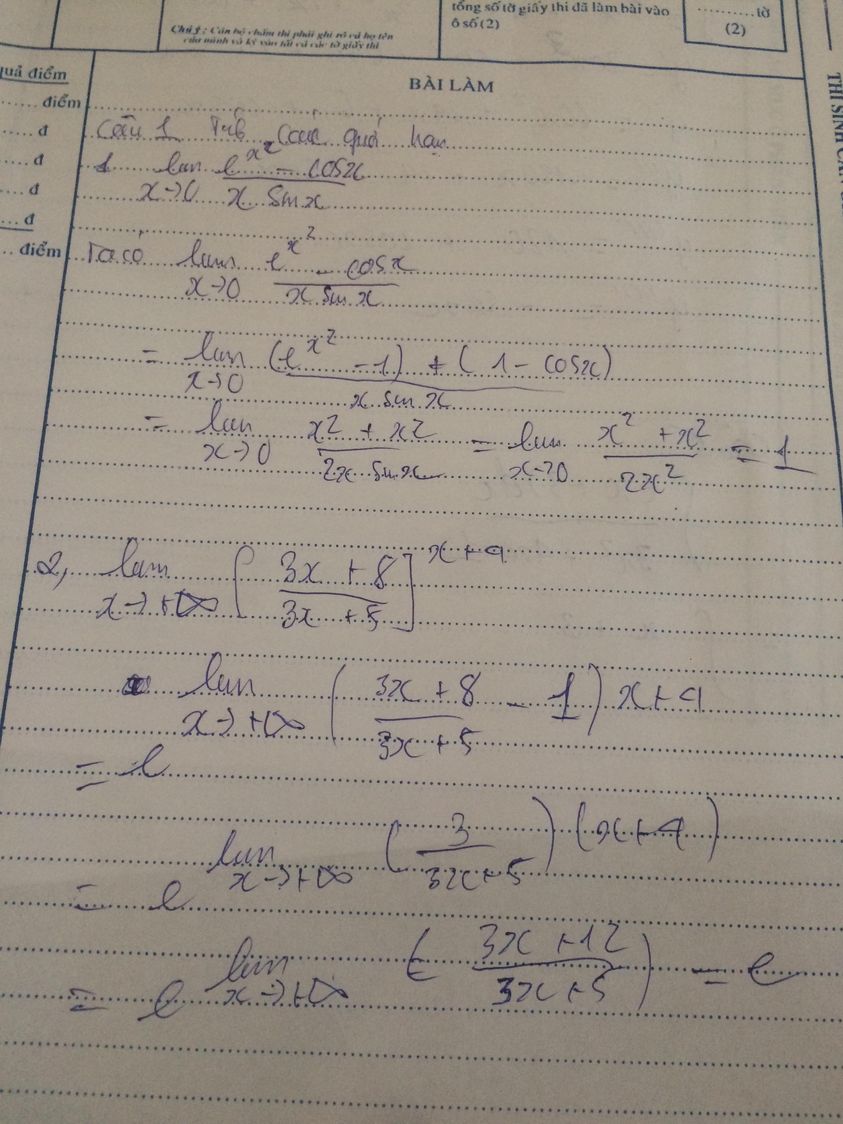 Chú ý : Cán bộ chấm thi phải ghi rõ cả họ tên
của mình và ký vào tất cả các tờ giấy thi
tổng số tờ giấy thi đã làm bài vào
ô số (2)
.......... tờ
(2)
quả điểm
...... điểm
..... đ
.... đ
.... đ
... đ
.. điểm
THÍ SINH
BÀI LÀM
Câu 1
1 lim x→0 (e^{x^2} - cosx)/(x sinx)
Ta có lim x→0 (e^{x^2} - cosx)/(x sinx)
= lim x→0 ((e^{x^2} - 1) + (1 - cosx))/(x sinx)
= lim x→0 (x^2 + x^2)/(2x sinx) = lim x→0 (x^2 + x^2)/(2x^2) = 1
2, lim x→+∞ [(3x + 8)/(3x + 5)]^{x+4}
= e^{lim x→+∞ ((3x + 8)/(3x + 5) - 1) x+4}
= e^{lim x→+∞ (3/(3x+5)) (x+4)}
= e^{lim x→+∞ ((3x + 12)/(3x + 5))} = e